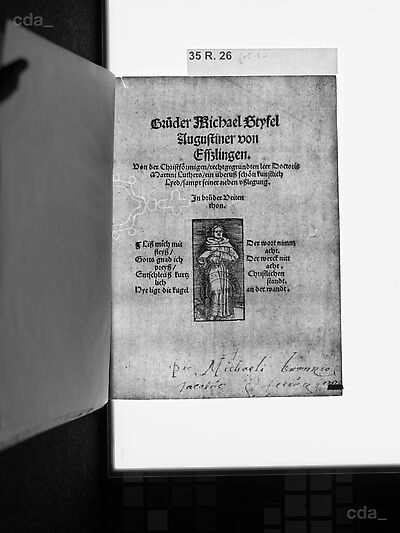 cda_
35 R. 26
Brůder Michael Styfel
Augustiner von
Eszlingen.
Von der Christförmigen/rechtgegründten leer Doctoris
Martini Luthers/ein überuß schön kunstlich
Lyed/sampt seiner neben vßlegung.
In brůder Veiten
thon.
¶ Liß mich mit
fleyß/
Gotts gnad ich
preyß/
Entschleüß kurtz
lich
Hye ligt die kugel
Der wort nimm
acht.
Der werck nit
acht.
Christlichen
standt.
an der wandt.
Pro Michaeli
Jacobus
cda_